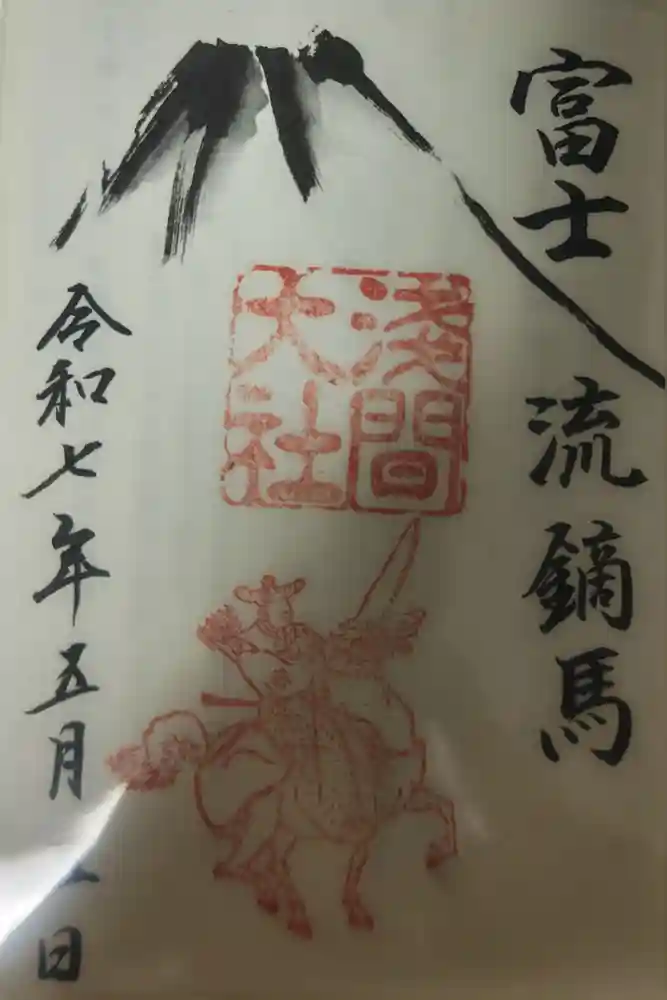 富士流鏑馬
淺間大社
令和七年五月 日